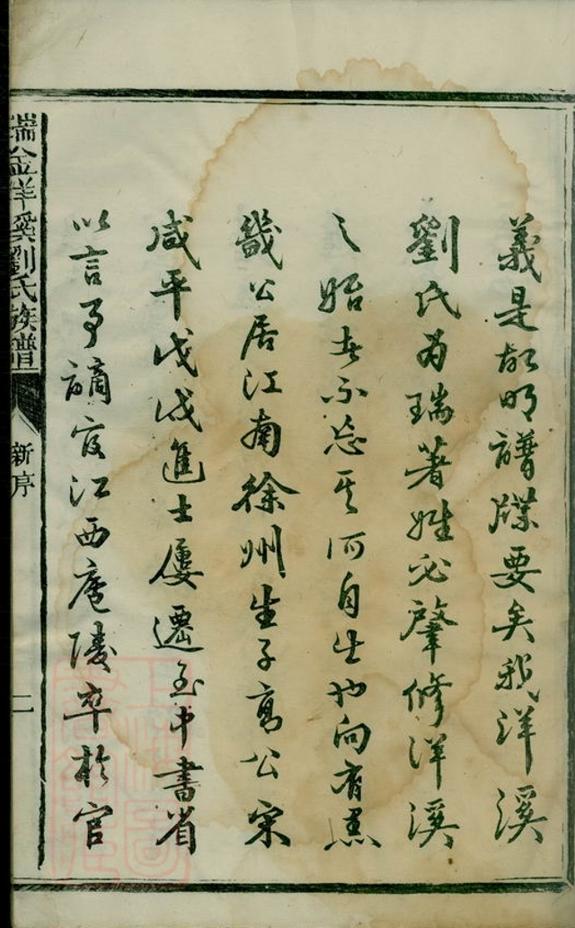 義是故明譜牒要矣我洋溪
劉氏為瑞著姓必肇修洋溪
之始者不忘其所自生也向有
畿公居江南徐州生子高公宋
咸平戊戌進士屢遷至中書省
以言事謫官江西廬陵卒於官
瑞金洋溪劉氏族譜
新序
二